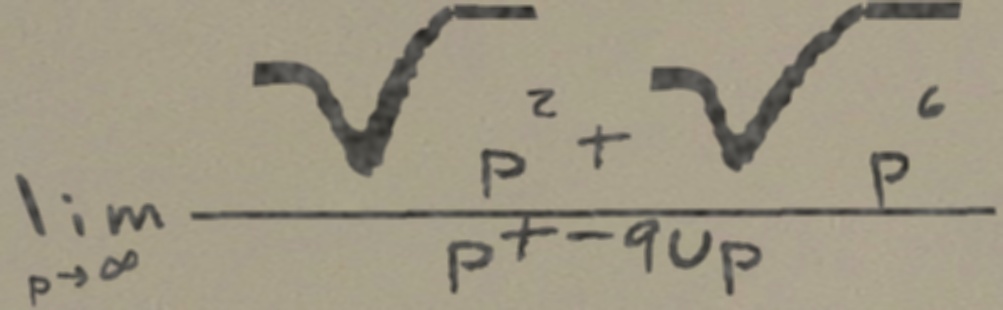 \lim_{p \to \infty} \frac{\sqrt{p^2} + \sqrt{p^6}}{p + -90p}